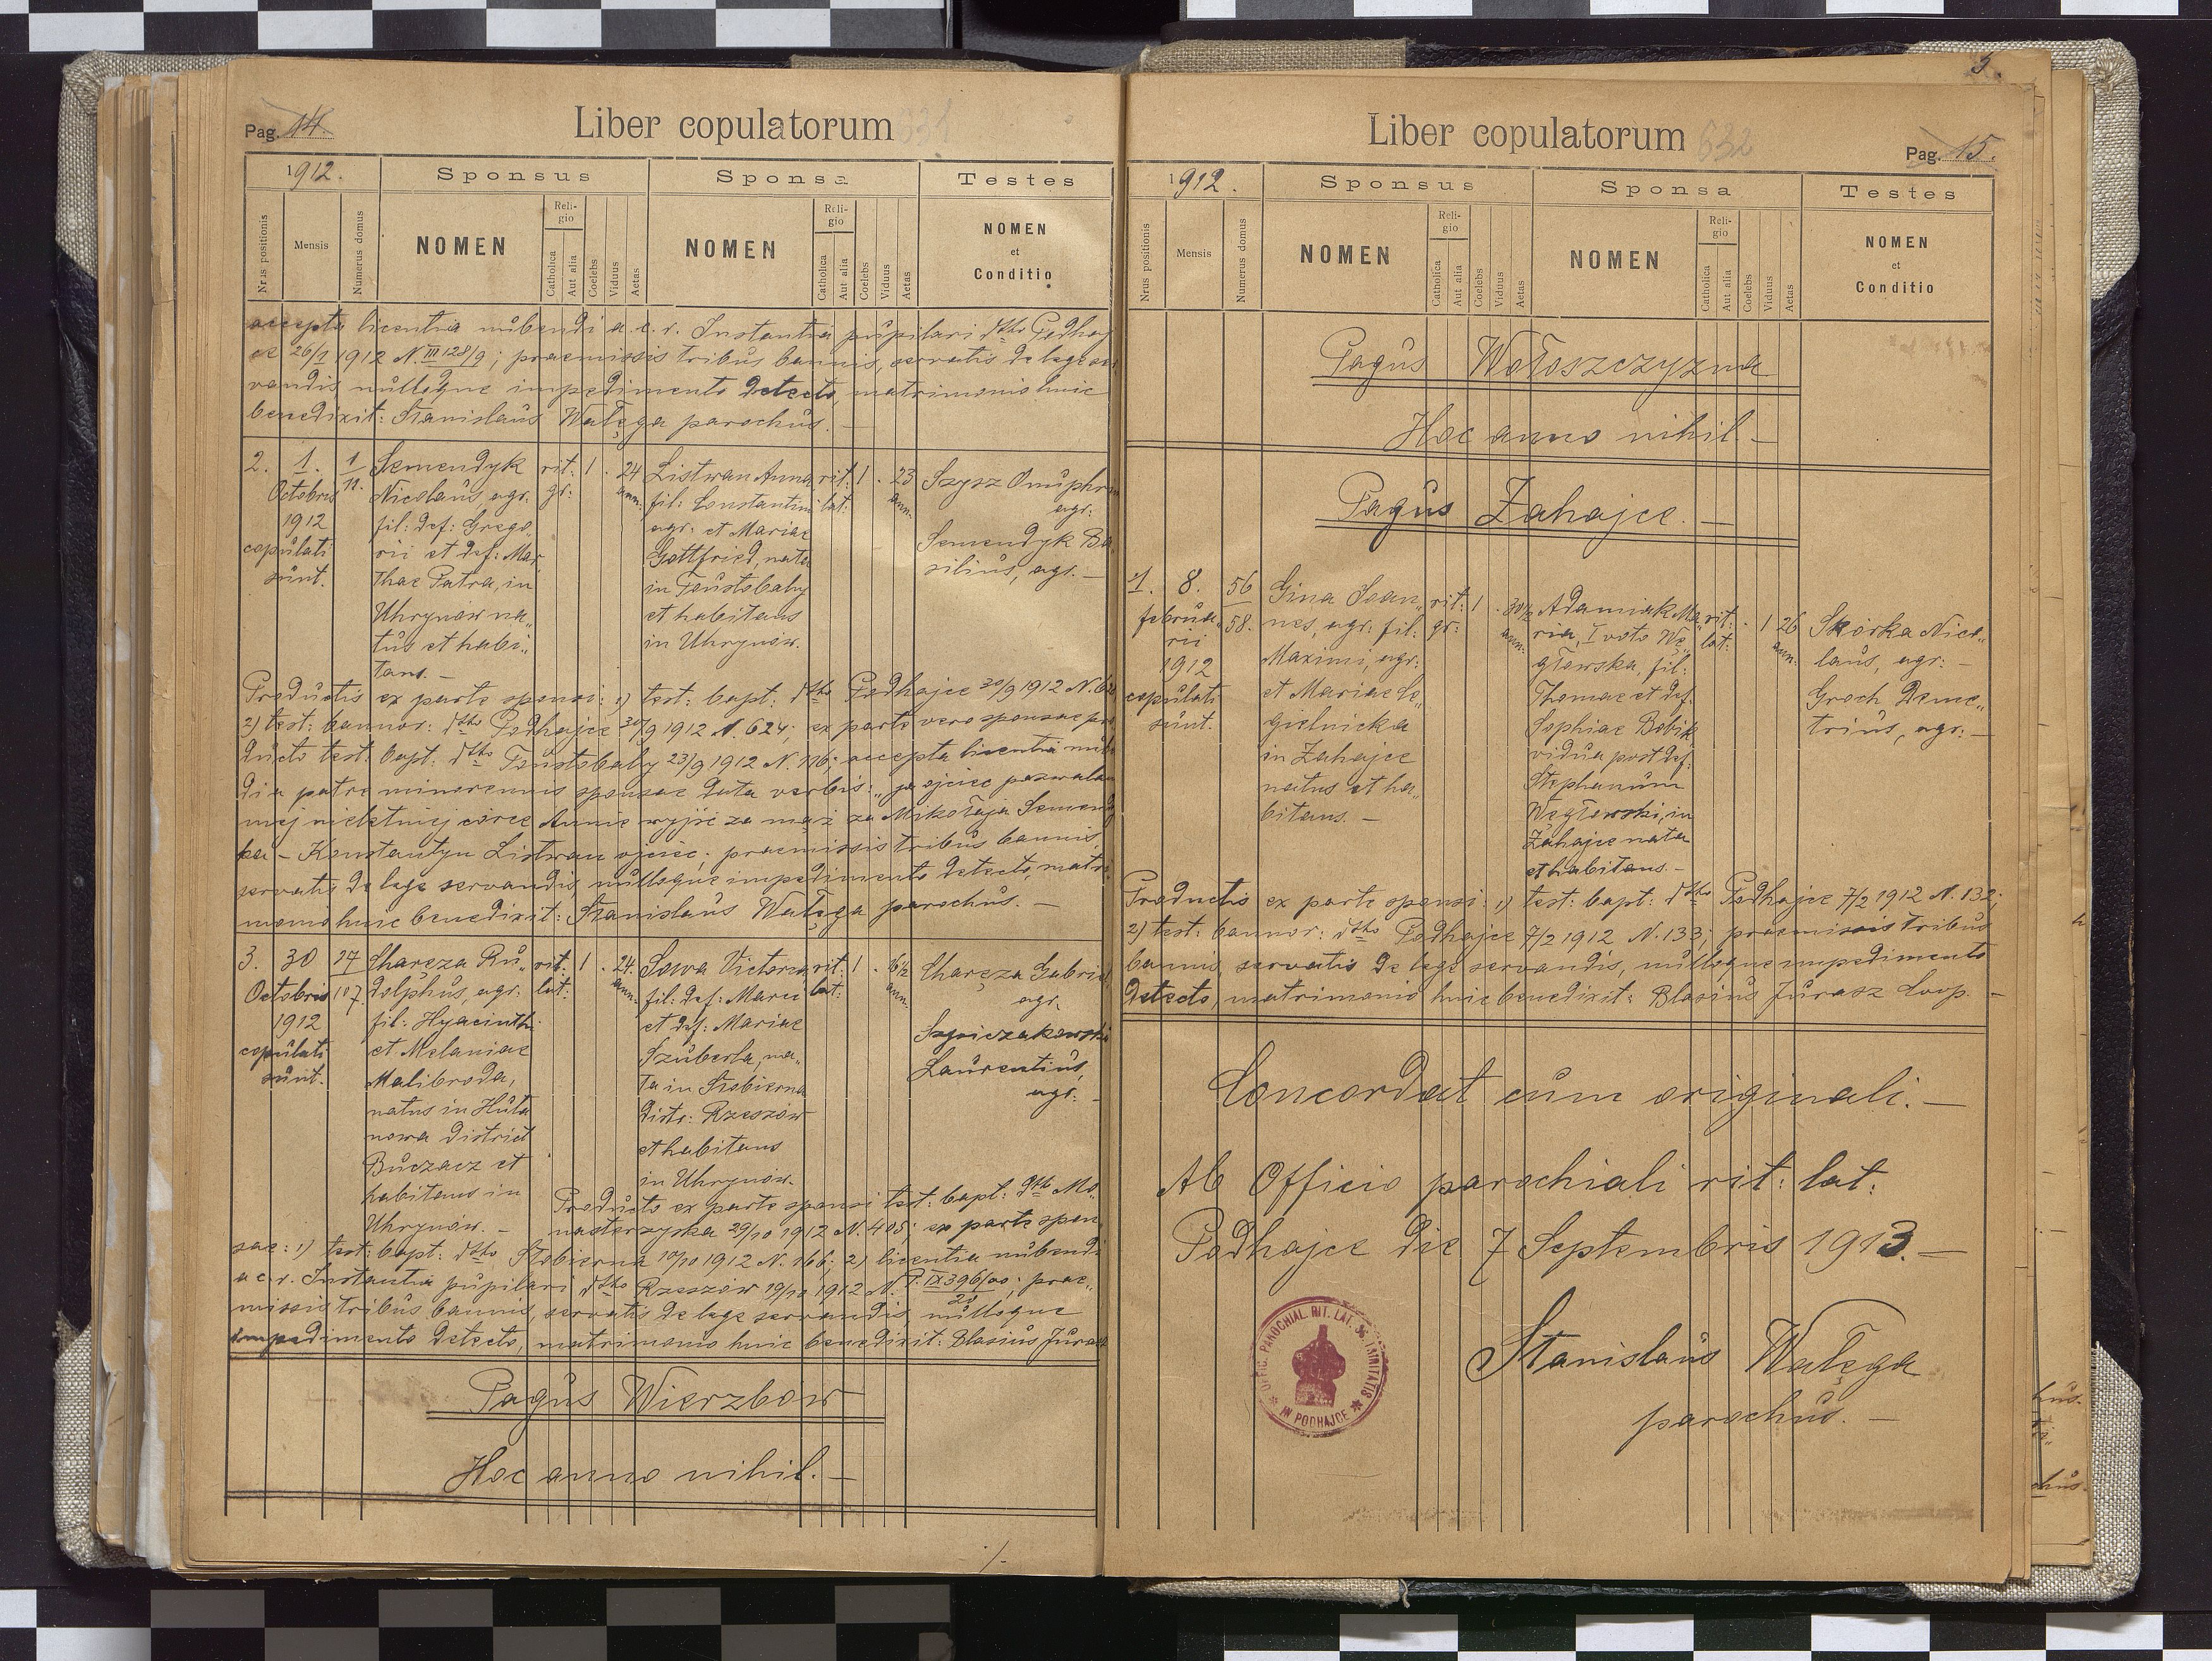 Pag. 14.
Liber copulatorum 631
1912.
Sponsus
Sponsa
Testes
Nrus positionis
Mensis
Numerus domus
NOMEN
Religio
Catholica
Aut alia
Coelebs
Viduus
Aetas
NOMEN
Religio
Catholica
Aut alia
Coelebs
Viduus
Aetas
NOMEN
et
Conditio
accepta licentia nubendi a c. r. Instantia pupilari dtto Podhaj
ce 26/1 1912 N. III 128/9; praemissis tribus bannis, servatis de lege ser
vandis nulloque impedimento detecto, matrimonio huic
benedixit: Stanislaus Wałęga parochus. —
2.
1.
Octobris
1912
copulati
sunt.
1
11.
Semendyk
Nicolaus agr.
fil: def: Grego„
rii et def: Mar
thae Patra, in
Uhrynów na„
tus et habi„
tans. —
rit:
gr:
1
.
24
ann:
Listwan Anna
fil: Constantini
agr: et Mariae
Gottfried, nata
in Toustobaby
et habitans
in Uhrynów.
rit:
lat:
1
.
23
ann.
Szysz Onuphri
agr:
Semendyk Ba
silius, agr. —
Productis ex parte sponsi: 1) test: bapt: dtto Podhajce 30/9 1912 N. 62
2) test: bannor: dtto Podhajce 30/9 1912 N. 624; ex parte vero sponsae pro
ducto test: bapt: dtto Toustobaby 23/9 1912 N. 116; accepta licentia nub
di a patre minorennis sponsae data verbis: „ja ojciec pozwalam
mej nieletniej córce Annie wyjść za mąż za Mikołaja Semendy
ka – Konstantyn Listwan ojciec; praemissis tribus bannis,
servatis de lege servandis, nulloque impedimento detecto, matri
monio huic benedixit: Stanislaus Wałęga parochus. —
3.
30
Octobris
1912
copulati
sunt.
27
107
Charęza Ru„
dolphus, agr:
fil: Hyacinthi
et Melaniae
Malibroda,
natus in Huta
nowa district
Buczacz et
habitans in
Uhrynów. —
rit:
lat:
1
.
24.
ann.
Sowa Victoria
fil: def: Marci
et def: Mariae
Szuberla, na„
ta in Stobierna
distr: Rzeszów
et habitans
in Uhrynów.
rit:
lat:
1
.
16 1/2
ann.
Charęza Gabriel
agr.
Szpiczakowski
Laurentius,
agr: —
Producto ex parte sponsi test: bapt: dtto Mo„
nasterzyska 29/10 1912 N. 405; ex parte spon
sae: 1) test: bapt: dtto Stobierna 10/10 1912 N. 166; 2) licentia nubendi
a c. r. Instantia pupilari dtto Rzeszów 19/10 1912 N. P. IX 396/00; prae„
28
missis tribus bannis, servatis de lege servandis, nulloque
impedimento detecto, matrimonio huic benedixit: Blasius Jurasz
Pagus Wierzbów
Hoc anno nihil. —
./.
5.
Liber copulatorum 632
Pag. 15.
1912.
Sponsus
Sponsa
Testes
Nrus positionis
Mensis
Numerus domus
NOMEN
Religio
Catholica
Aut alia
Coelebs
Viduus
Aetas
NOMEN
Religio
Catholica
Aut alia
Coelebs
Viduus
Aetas
NOMEN
et
Conditio
Pagus Wołoszczyzna
Hoc anno nihil. —
Pagus Zahajce. —
1.
8.
februa„
rii
1912
copulati
sunt.
56
58.
Gina Joan„
nes, agr: fil:
Maximi, agr:
et Mariae Ce„
gielnicka
in Zahajce
natus et ha„
bitans. —
rit:
gr:
1
.
30 1/2
ann:
Adamiak Ma„
ria, I voto Wę„
głowska, fil:
Thomae et def.
Sophiae Bobik
vidua post def.
Stephanum
Węglowski, in
Zahajce nata
et habitans. —
rit:
lat:
.
1
26
ann:
Skórka Nico„
laus, agr: —
Groch Deme„
trius, agr: —
Productis ex parte sponsi: 1) test: bapt: dtto Podhajce 7/2 1912 N. 132;
2) test: bannor: dtto Podhajce 7/2 1912 N. 133; praemissis tribus
bannis, servatis de lege servandis, nulloque impedimento
detecto, matrimonio huic benedixit: Blasius Jurasz Coop. —
Concordat cum originali. —
Ab Officio parochiali rit: lat:
Podhajce die 7 Septembris 1913. —
OFFIC. PAROCHIAL. RIT. LAT. SS. TRINITATIS
IN PODHAJCE
Stanislaus Wałęga
parochus. —